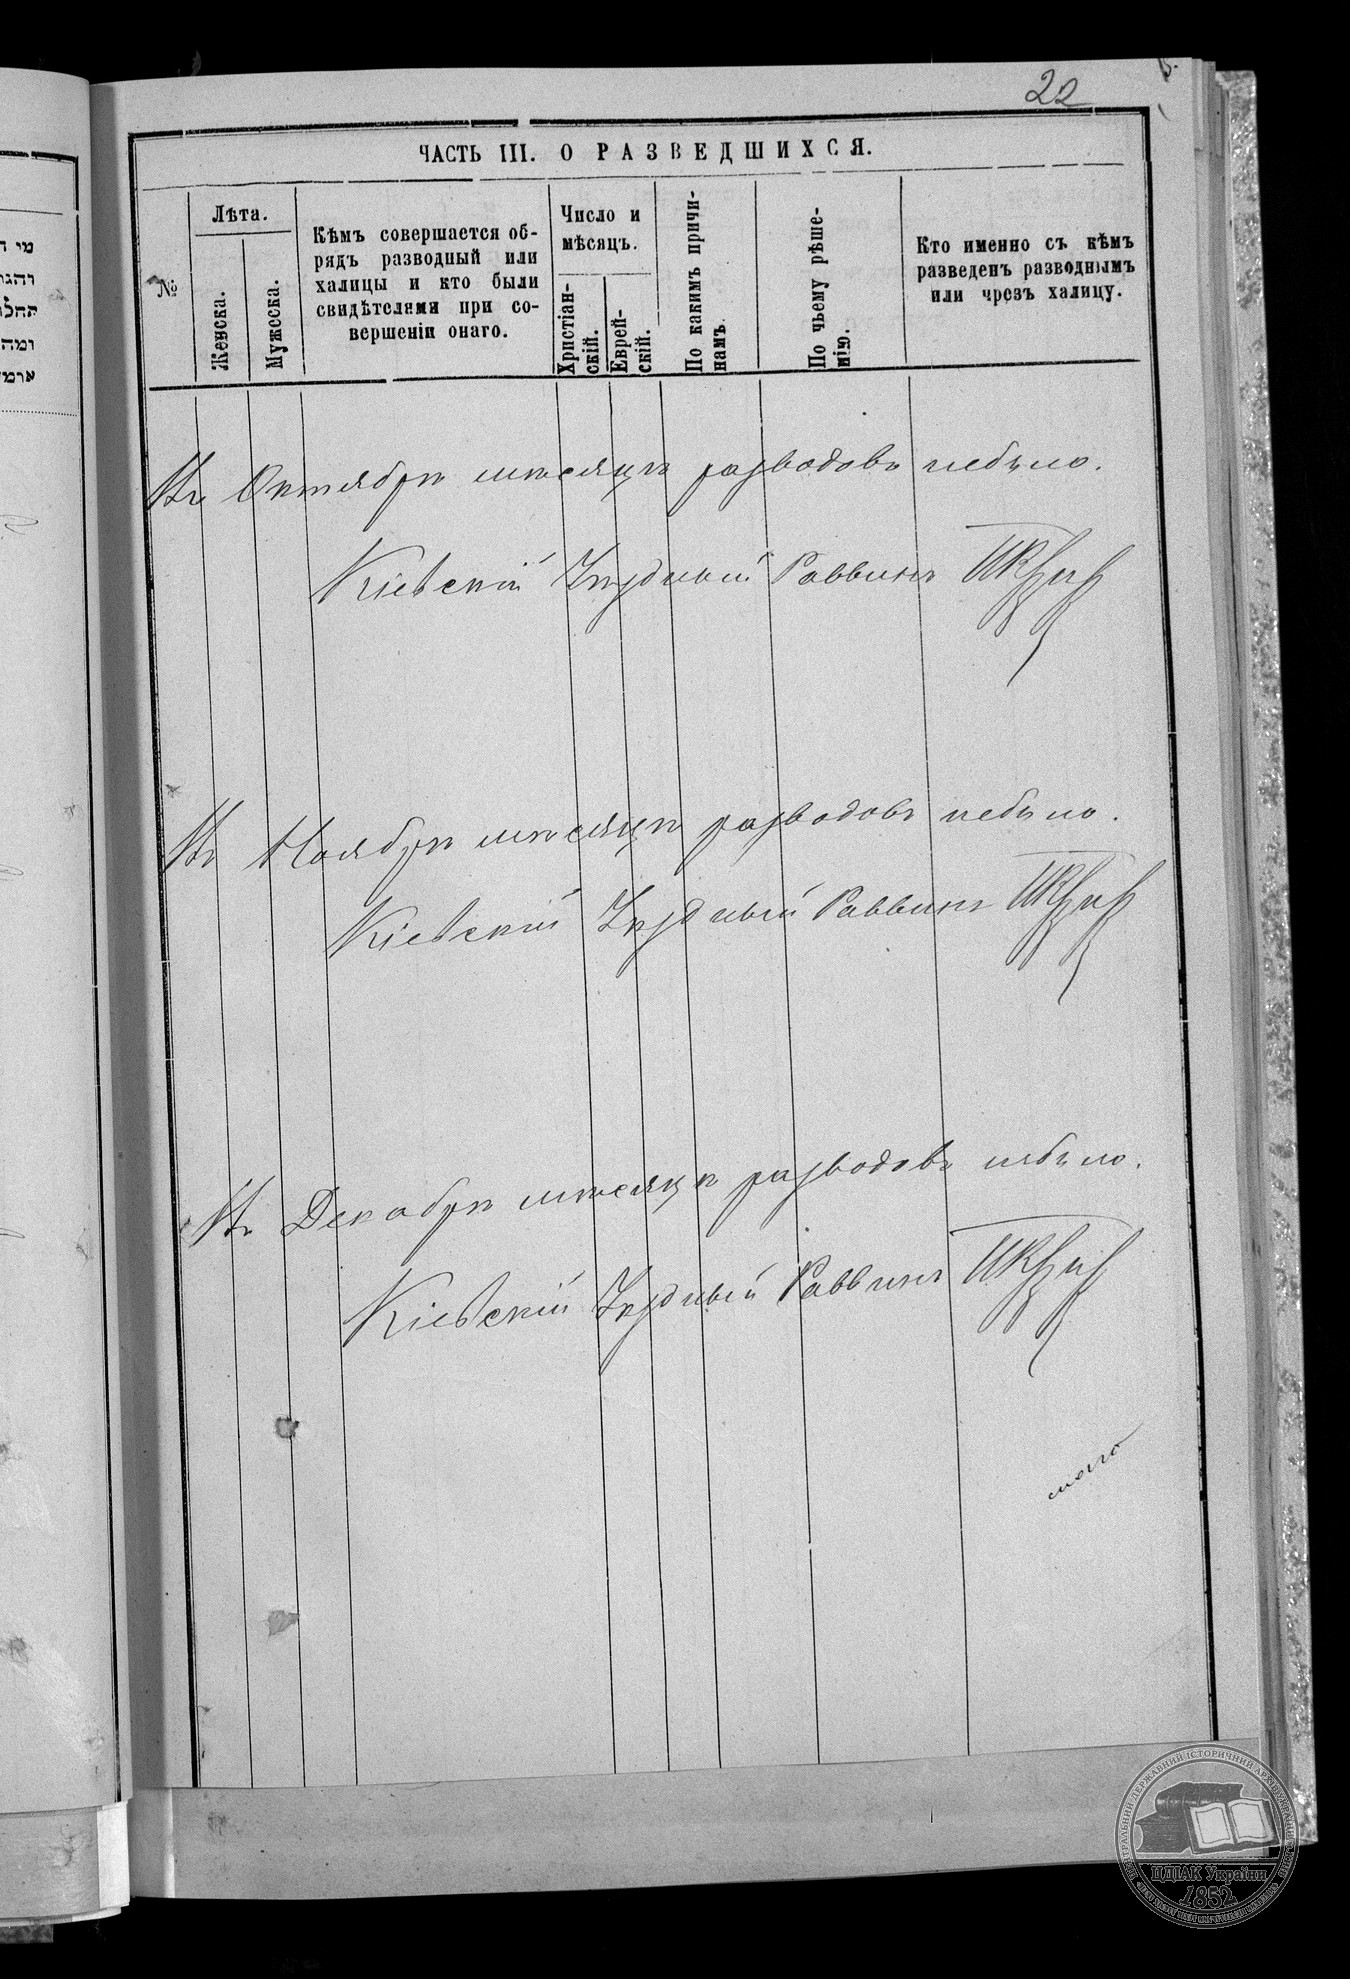 22
ЧАСТЬ III. О РАЗВЕДШИХСЯ.
№
Лѣта.
Женска.
Мужеска.
Кѣмъ совершается об-
рядъ разводный или
халицы и кто были
свидѣтелями при со-
вершеніи онаго.
Число и
мѣсяцъ.
Христіан-
скій.
Еврей-
скій.
По какимъ причи-
намъ.
По чьему рѣше-
нію.
Кто именно съ кѣмъ
разведенъ разводнымъ
или чрезъ халицу.
Въ Октябрѣ мѣсяцѣ разводовъ небыло.
Кіевскій Уѣздный Раввинъ
Въ Ноябрѣ мѣсяцѣ разводовъ небыло.
Кіевскій Уѣздный Раввинъ
Въ Декабрѣ мѣсяцѣ разводовъ небыло.
Кіевскій Уѣздный Раввинъ
מי
ומה
ЦДІАК України
1852